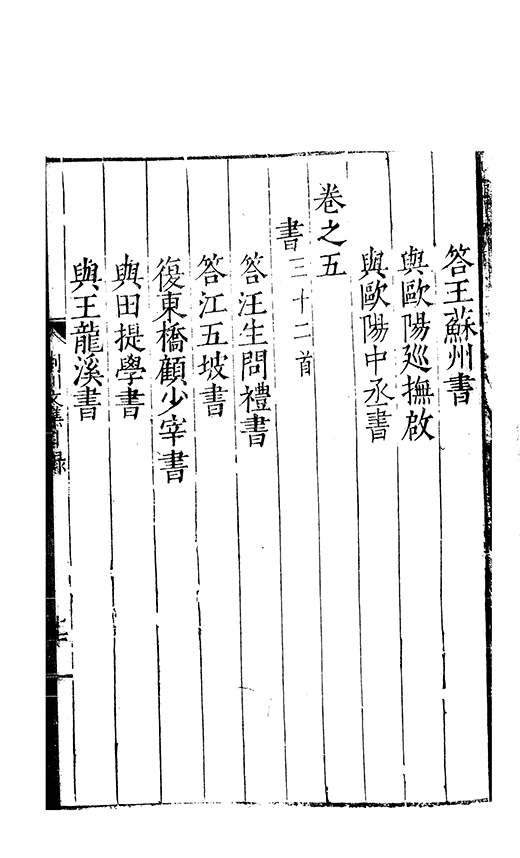 答王蘇州書
與歐陽廵撫啟
與歐陽中丞書
卷之五
書三十二首
答汪生問禮書
答江五坡書
復東橋顧少宰書
與田提學書
與王龍溪書
荆川文集目録